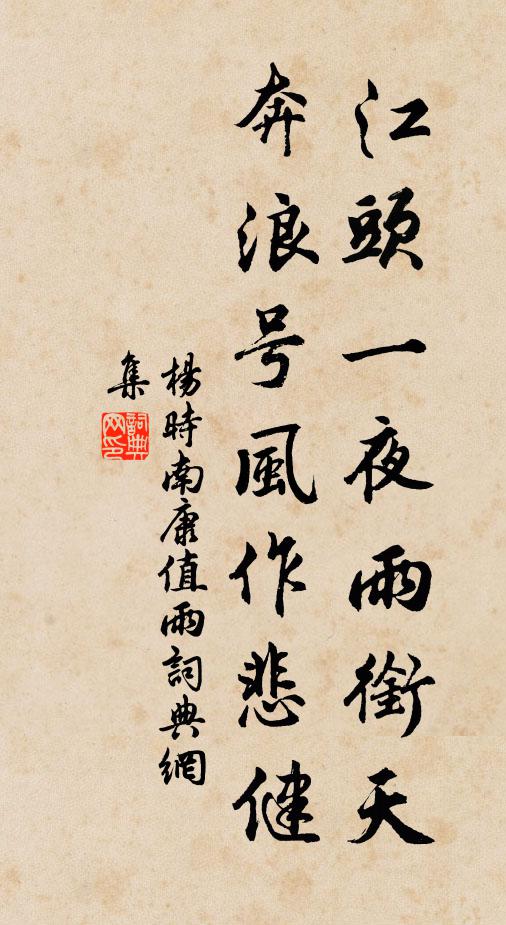 江頭一夜雨銜天
奔浪号風作悲健
楊時南康值雨詞典網
集
詞典网印